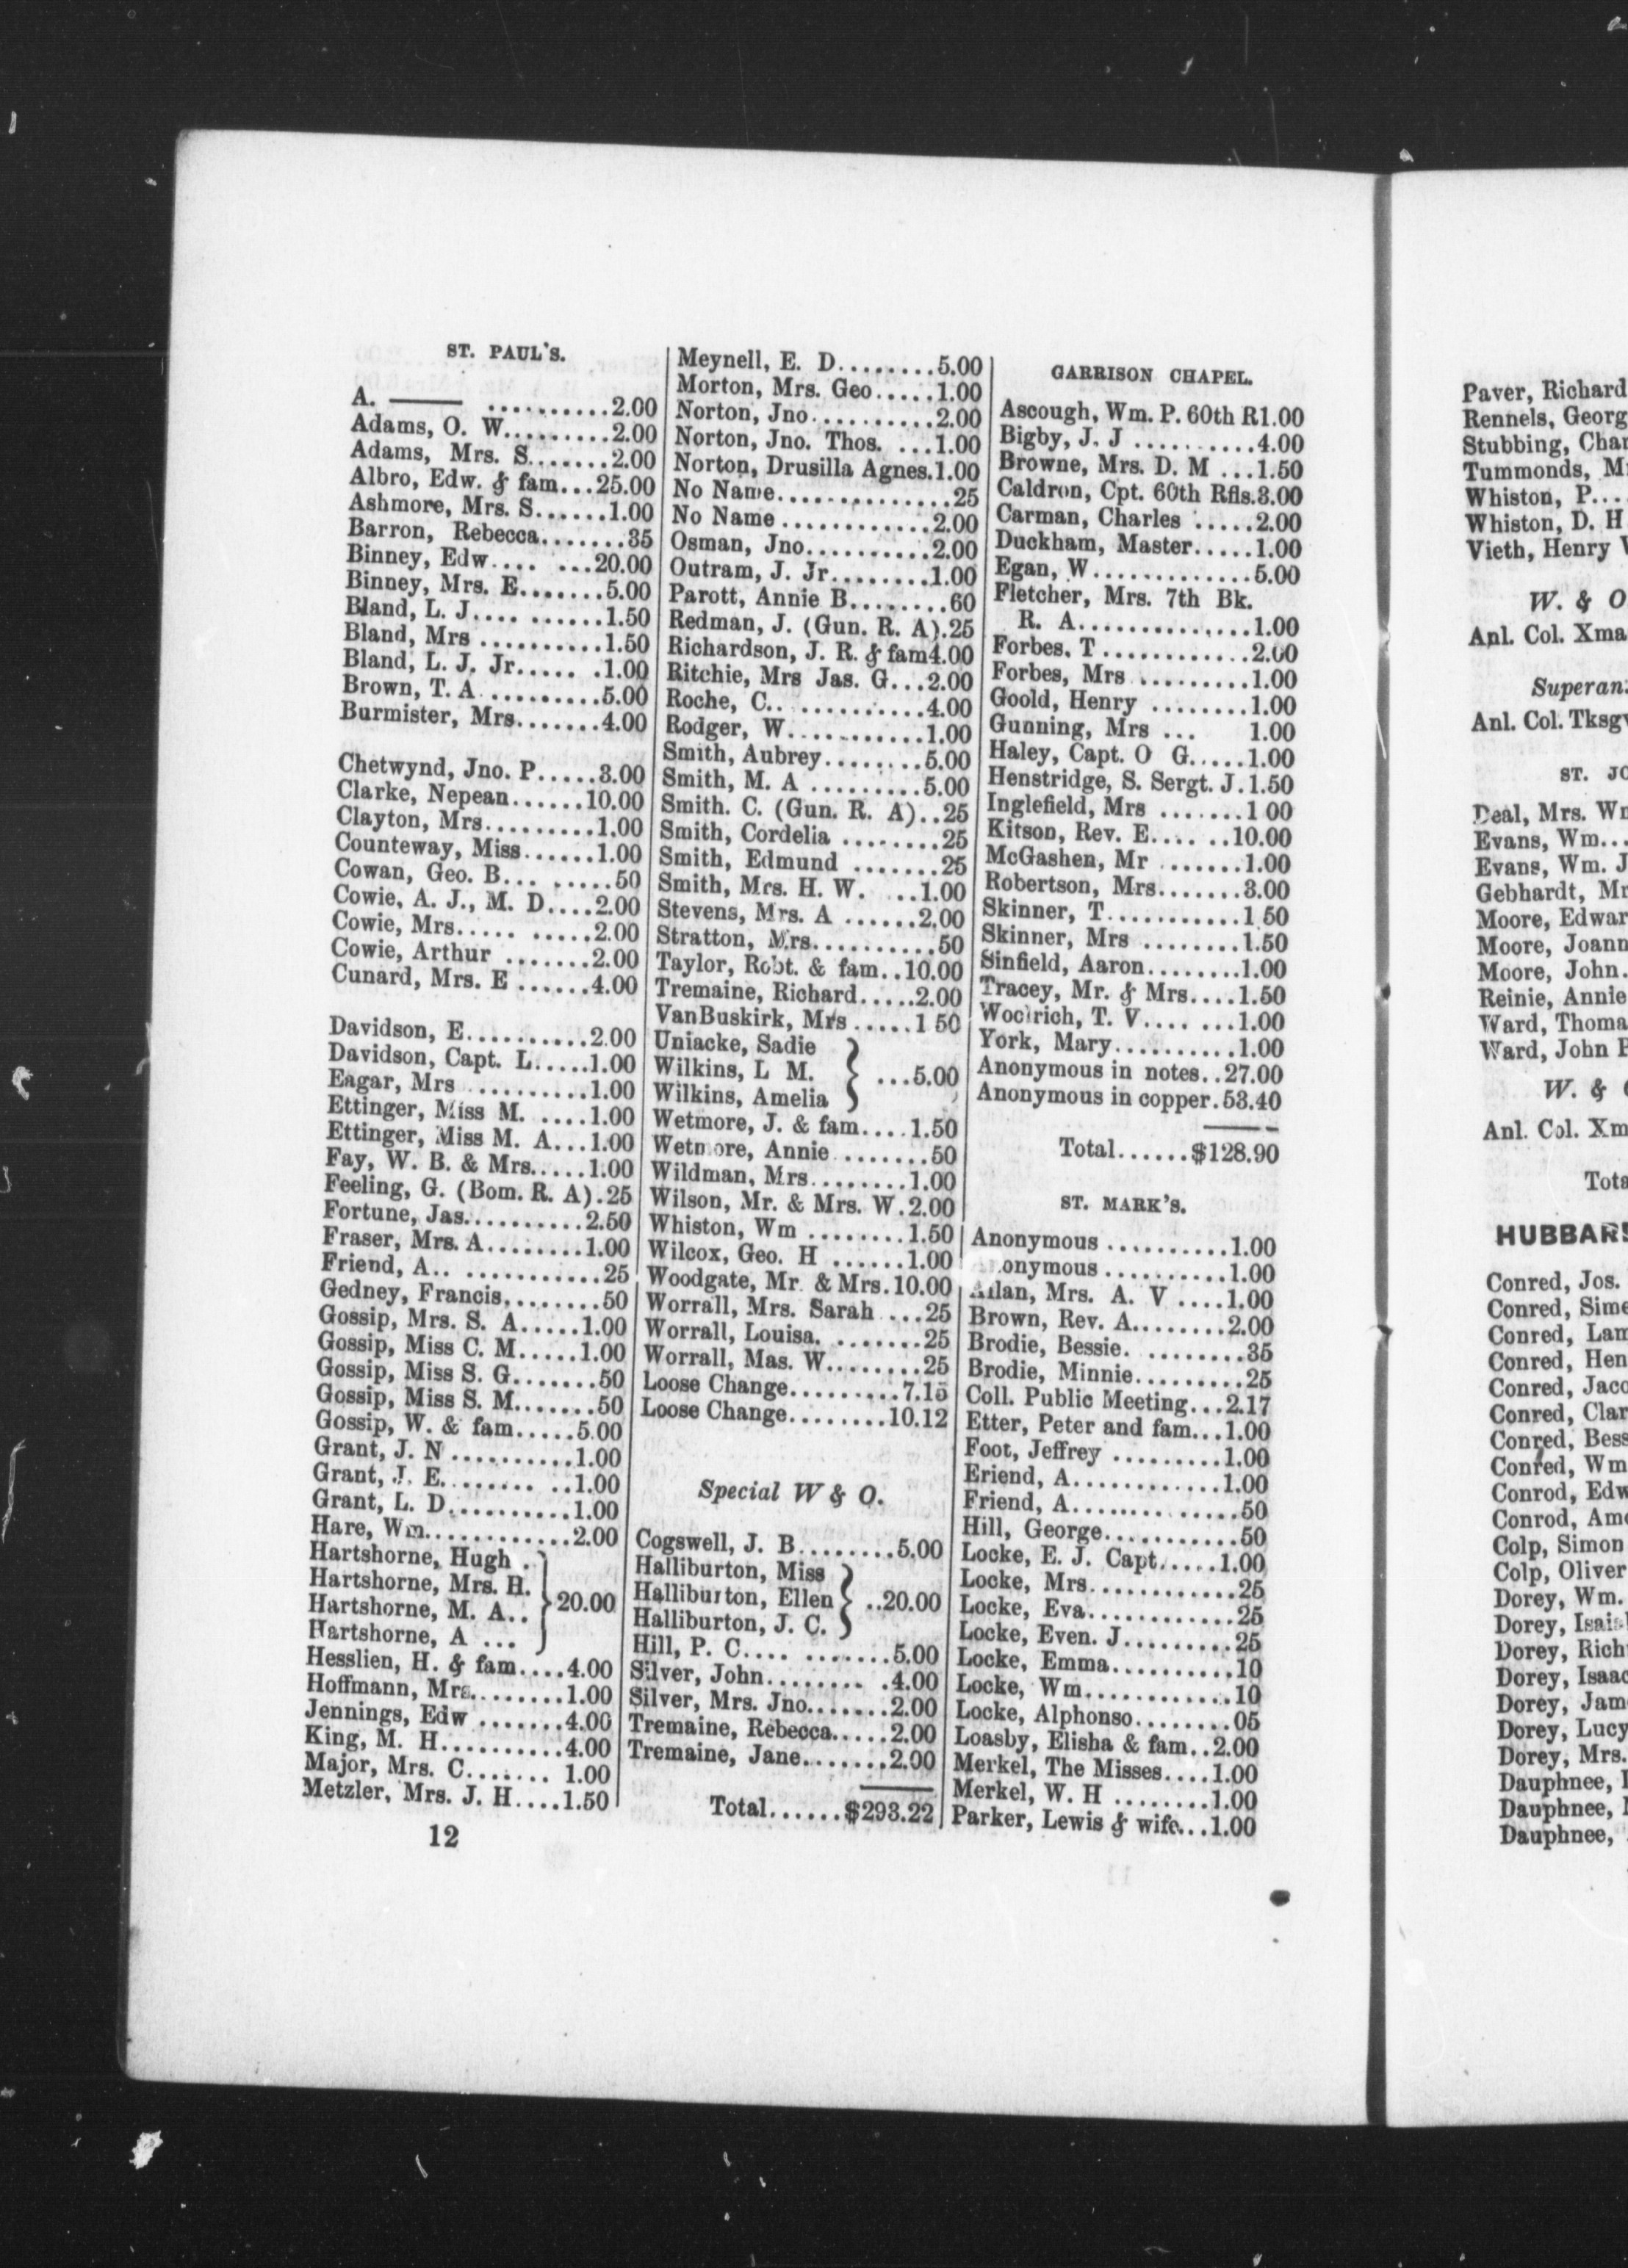 ST. PAUL'S.
A. ——— ..........2.00
Adams, O. W.........2.00
Adams, Mrs. S.......2.00
Albro, Edw. & fam...25.00
Ashmore, Mrs. S......1.00
Barron, Rebecca.......35
Binney, Edw.... ...20.00
Binney, Mrs. E.......5.00
Bland, L. J.... ......1.50
Bland, Mrs ..........1.50
Bland, L. J. Jr..... .1.00
Brown, T. A ..........5.00
Burmister, Mrs.......4.00
Chetwynd, Jno. P.....3.00
Clarke, Nepean......10.00
Clayton, Mrs.........1.00
Counteway, Miss......1.00
Cowan, Geo. B... ......50
Cowie, A. J., M. D....2.00
Cowie, Mrs..... .....2.00
Cowie, Arthur .......2.00
Cunard, Mrs. E ......4.00
Davidson, E..........2.00
Davidson, Capt. L.....1.00
Eagar, Mrs ..........1.00
Ettinger, Miss M. ....1.00
Ettinger, Miss M. A...1.00
Fay, W. B. & Mrs.....1.00
Feeling, G. (Bom. R. A).25
Fortune, Jas..........2.50
Fraser, Mrs. A........1.00
Friend, A.. ...........25
Gedney, Francis........50
Gossip, Mrs. S. A.....1.00
Gossip, Miss C. M.....1.00
Gossip, Miss S. G.......50
Gossip, Miss S. M.......50
Gossip, W. & fam.....5.00
Grant, J. N ..........1.00
Grant, J. E........ ..1.00
Grant, L. D..........1.00
Hare, Wm............2.00
Hartshorne, Hugh .
Hartshorne, Mrs. H.
Hartshorne, M. A.. } 20.00
Hartshorne, A ...
Hesslien, H. & fam....4.00
Hoffmann, Mrs........1.00
Jennings, Edw .......4.00
King, M. H..........4.00
Major, Mrs. C....... 1.00
Metzler, Mrs. J. H....1.50
12
Meynell, E. D........5.00
Morton, Mrs. Geo.....1.00
Norton, Jno..........2.00
Norton, Jno. Thos. ...1.00
Norton, Drusilla Agnes.1.00
No Name..............25
No Name............2.00
Osman, Jno..........2.00
Outram, J. Jr........1.00
Parott, Annie B........60
Redman, J. (Gun. R. A).25
Richardson, J. R. & fam4.00
Ritchie, Mrs Jas. G...2.00
Roche, C.. ..........4.00
Rodger, W...........1.00
Smith, Aubrey........5.00
Smith, M. A .........5.00
Smith. C. (Gun. R. A)..25
Smith, Cordelia ........25
Smith, Edmund .......25
Smith, Mrs. H. W. ..1.00
Stevens, Mrs. A ......2.00
Stratton, Mrs..........50
Taylor, Robt. & fam..10.00
Tremaine, Richard.....2.00
VanBuskirk, Mrs .....1 50
Uniacke, Sadie
Wilkins, L M. } ...5.00
Wilkins, Amelia
Wetmore, J. & fam....1.50
Wetmore, Annie ........50
Wildman, Mrs........1.00
Wilson, Mr. & Mrs. W.2.00
Whiston, Wm ........1.50
Wilcox, Geo. H ......1.00
Woodgate, Mr. & Mrs.10.00
Worrall, Mrs. Sarah ...25
Worrall, Louisa. .......25
Worrall, Mas. W........25
Loose Change.........7.15
Loose Change........10.12
Special W & O.
Cogswell, J. B........5.00
Halliburton, Miss
Halliburton, Ellen } ..20.00
Halliburton, J. C.
Hill, P. C.... .......5.00
Silver, John........ .4.00
Silver, Mrs. Jno.......2.00
Tremaine, Rebecca.....2.00
Tremaine, Jane.......2.00
Total......$293.22
GARRISON CHAPEL.
Ascough, Wm. P. 60th R1.00
Bigby, J. J ..........4.00
Browne, Mrs. D. M ...1.50
Caldron, Cpt. 60th Rfls.3.00
Carman, Charles .....2.00
Duckham, Master.....1.00
Egan, W.............5.00
Fletcher, Mrs. 7th Bk.
R. A..............1.00
Forbes, T............2.00
Forbes, Mrs .........1.00
Goold, Henry ........1.00
Gunning, Mrs ... 1.00
Haley, Capt. O G.....1.00
Henstridge, S. Sergt. J.1.50
Inglefield, Mrs .......1 00
Kitson, Rev. E.... ..10.00
McGashen, Mr .......1.00
Robertson, Mrs.......3.00
Skinner, T...........1 50
Skinner, Mrs ........1.50
Sinfield, Aaron........1.00
Tracey, Mr. & Mrs....1.50
Woolrich, T. V.... ...1.00
York, Mary..........1.00
Anonymous in notes..27.00
Anonymous in copper.53.40
Total......$128.90
ST. MARK'S.
Anonymous ..........1.00
Anonymous ..........1.00
Allan, Mrs. A. V ....1.00
Brown, Rev. A........2.00
Brodie, Bessie. ........35
Brodie, Minnie.........25
Coll. Public Meeting...2.17
Etter, Peter and fam...1.00
Foot, Jeffrey .........1.00
Eriend, A............1.00
Friend, A..............50
Hill, George...........50
Locke, E. J. Capt.....1.00
Locke, Mrs............25
Locke, Eva............25
Locke, Even. J.........25
Locke, Emma..........10
Locke, Wm............10
Locke, Alphonso........05
Loasby, Elisha & fam..2.00
Merkel, The Misses....1.00
Merkel, W. H ........1.00
Parker, Lewis & wife...1.00
Paver, Richard
Rennels, Georg
Stubbing, Char
Tummonds, M
Whiston, P....
Whiston, D. H
Vieth, Henry
W. & O
Anl. Col. Xma
Superan
Anl. Col. Tksgv
ST. JO
Deal, Mrs. Wm
Evans, Wm...
Evans, Wm. J
Gebhardt, Mr
Moore, Edwar
Moore, Joann
Moore, John.
Reinie, Annie
Ward, Thoma
Ward, John
W. &
Anl. Col. Xm
Tota
HUBBARS
Conred, Jos.
Conred, Sime
Conred, Lam
Conred, Hen
Conred, Jaco
Conred, Clar
Conred, Bess
Conred, Wm
Conrod, Edw
Conrod, Am
Colp, Simon
Colp, Oliver
Dorey, Wm.
Dorey, Isaia
Dorey, Rich
Dorey, Isaac
Dorey, Jam
Dorey, Lucy
Dorey, Mrs.
Dauphnee,
Dauphnee,
Dauphnee,